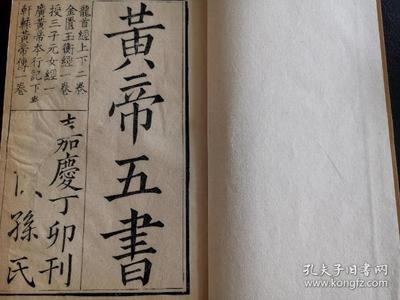 黃帝五書
龍首經上下二卷
金匱玉衡經一卷
授三子元女經一
廣黃帝本行記下
軒轅黃帝傳一卷
嘉慶丁卯刊
孫氏
孔夫子旧书网